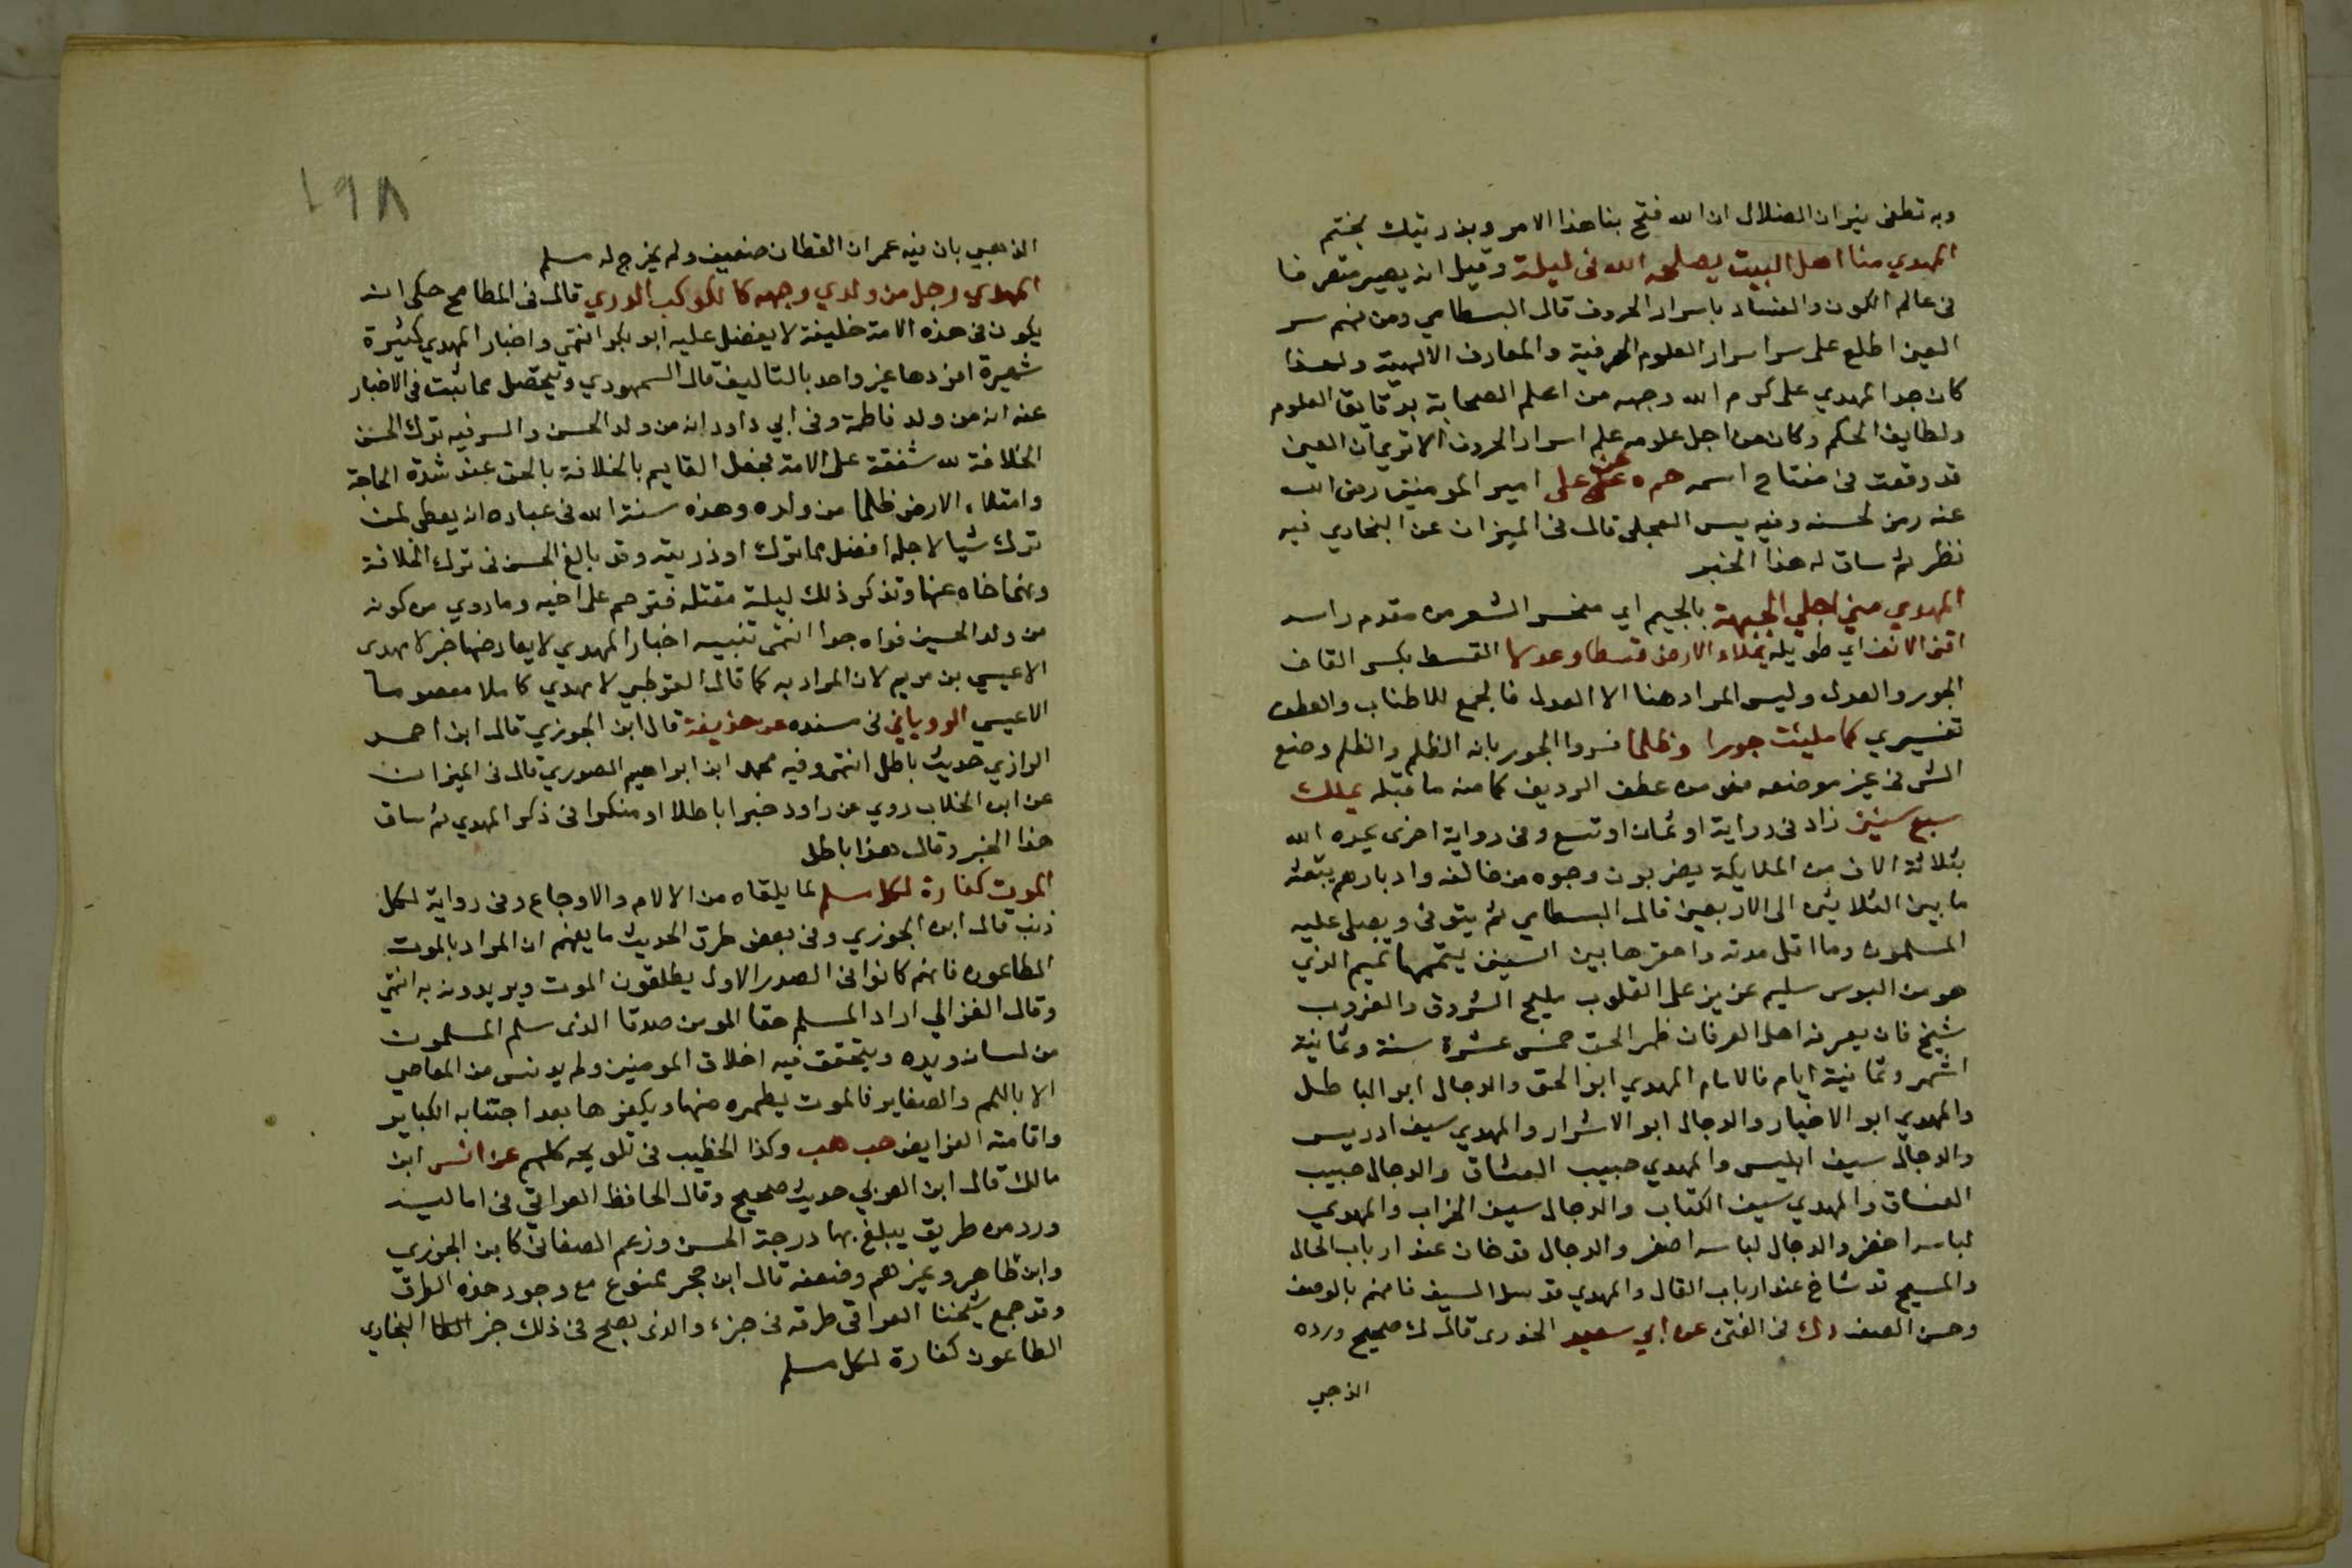 وبه تطفى نيران الضلال ان الله فتح بنا هذا الامر وبذريتك يختم
المهدي منا اهل البيت يصلحه الله في ليلة وقيل انه يصير متصرفا
في عالم الكون والفساد باسرار الحروف قال البسطامي ومن فهم سر
العين اطلع على سر اسرار العلوم الحرفية والمعارف الالهية ولهذا
كان جد المهدي على كرم الله وجهه من اعلم الصحابة بدقايق العلوم
ولطايف الحكم وكان من اجل علومه علم اسرار الحروف الا ترى ان العين
قد وقعت في مفتاح اسمه حم ه عن على امير المومنين رضى الله
عنه رمز لحسنه وفيه يس العجلى قال في الميزان عن البخاري فيه
نظر ثم ساق له هذا الخبر
المهدي مني اجلي الجبهة بالجيم اي منحسر الشعر من مقدم راسه
اقنى الانف اي طويله يملاء الارض قسطا وعدلا القسط بكسر القاف
الجور والعدل وليس المراد هنا الا العدل فالجمع للاطناب والعطف
تفسيري كما ملئت جورا وظلما فسروا الجور بانه الظلم والظلم وضع
الشى في غير موضعه فهو من عطف الرديف كما منه ما قبله يملك
سبع سنين زاد في رواية او ثمان او تسع وفي رواية اخرى يمده الله
بثلاثة الاف من الملايكة يضربون وجوه من خالفه وادبارهم يبعث
ما بين الثلاثين الى الاربعين قال البسطامي ثم يتوفى ويصلى عليه
المسلمون وما اقل مدته واحقرها بين السنين يتممها تميم الذي
هو من البوس سليم عزيز على القلوب مليح الشروق والغروب
شيخ فان يعرفه اهل العرفان ظهر الحق خمس عشرة سنة وثمانية
اشهر وثمانية ايام فالامام المهدي ابو الحق والدجال ابو الباطل
والمهدي ابو الاخيار والدجال ابو الاشرار والمهدي سيف ادريس
والدجال سيف ابليس والمهدي حبيب العشاق والدجال حبيب
الفساق والمهدي سيف الكتاب والدجال سيف الخراب والمهدي
لباسه اخضر والدجال لباسه اصفر والدجال قد خان عند ارباب الحال
والمسيح قد شاخ عند ارباب القال والمهدي قد سل السيف فافهم بالوصف
وحسن الصف د ك في الفتن عن ابي سعيد الخدرى قال ك صحيح ورده
الذهبي
١٩٨
الذهبي بان فيه عمران القطان ضعيف ولم يخرج له مسلم
المهدي رجل من ولدي وجهه كالكوكب الدري قال في المطامح حكى انه
يكون في هذه الامة خليفة لا يفضل عليه ابو بكر انتهى واخبار المهدي كثيرة
شهيرة افردها غير واحد بالتاليف قال السمهودي ويتحصل مما ثبت في الاخبار
عنه انه من ولد فاطمة وفي ابي داود انه من ولد الحسن والسر فيه ترك الحسن
الخلافة لله شفقة على الامة فجعل القايم بالخلافة بالحق عند شدة الحاجة
وامتلاء الارض ظلما من ولده وهذه سنة الله في عباده انه يعطى لمن
ترك شيا لاجله افضل مما ترك او ذريته وقد بالغ الحسن في ترك الخلافة
ونهى اخاه عنها وتذكر ذلك ليلة مقتله فترحم على اخيه وما روي من كونه
من ولد الحسين فواه جدا انتهى تنبيه اخبار المهدي لا يعارضها خبر لا مهدى
الا عيسي بن مريم لان المراد به كما قال القرطبي لا مهدي كاملا معصوما
الا عيسي الروياني في مسنده عن حذيفة قال ابن الجوزي قال ابن احمد
الرازي حديث باطل انتهى وفيه محمد ابن ابراهيم الصوري قال في الميزان
عن ابن الجلاب روي عن راود خبرا باطلا او منكرا في ذكر المهدي ثم ساق
هذا الخبر وقال هذا باطل
الموت كفارة لكل مسلم لما يلقاه من الالام والاوجاع وفي رواية لكل
ذنب قال ابن الجوزي وفي بعض طرق الحديث ما يفهم ان المراد بالموت
الطاعون فانهم كانوا في الصدر الاول يطلقون الموت ويريدونه به انتهى
وقال الغزالي اراد المسلم حقا المومن صدقا الذى سلم المسلمون
من لسانه ويده ويتحقق فيه اخلاق المومنين ولم يدنس من المعاصي
الا باللمم والصغاير فالموت يطهره منها ويكفرها بعد اجتنابه الكباير
واقامته الفرايض حب هب وكذا الخطيب في تاريخه كلهم عن انس ابن
مالك قال ابن العربي حديث صحيح وقال الحافظ العراقي في اماليه
ورد من طريق يبلغ بها درجة الحسن وزعم الصغاني كابن الجوزي
وابن طاهر وغيرهم وضعفه قال ابن حجر ممنوع مع وجود هذه الطرق
وقد جمع شيخنا العراقى طرقه في جزء والذى يصح في ذلك خبر البخاري
الطاعون كفارة لكل مسلم